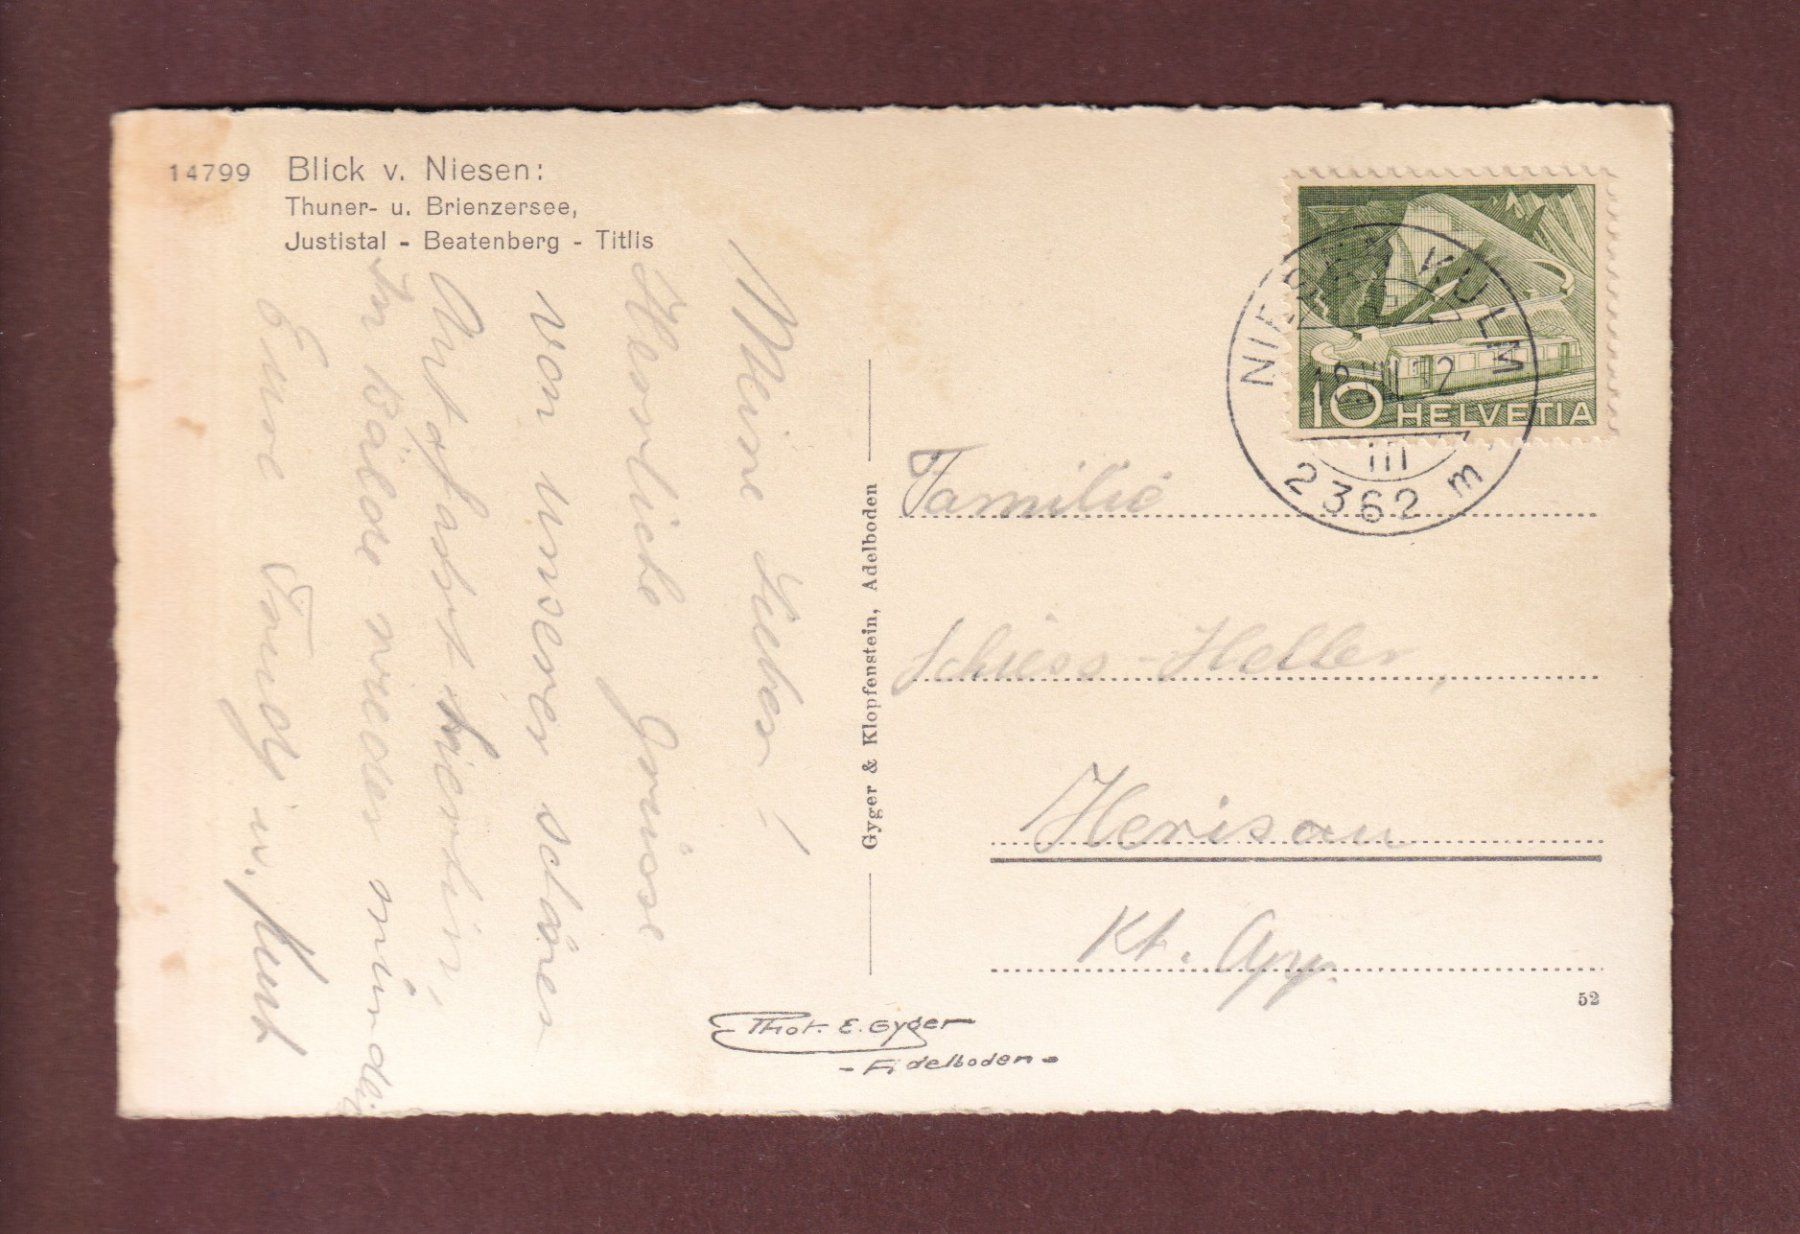 14799 Blick v. Niesen:
Thuner- u. Brienzersee,
Justistal - Beatenberg - Titlis
Meine Lieben!
Herzliche Grüsse
von unserer schönen
hierhin,
In Bälde wieder mündli
Eure Trudy u. Kurt
Gyger & Klopfenstein, Adelboden
Phot. E. Gyger
- Adelboden -
10 HELVETIA
NIESEN KULM
18.VIII. 2
III
2362 m
Familie
Schiess-Heller,
Herisau
Kt. App.
52